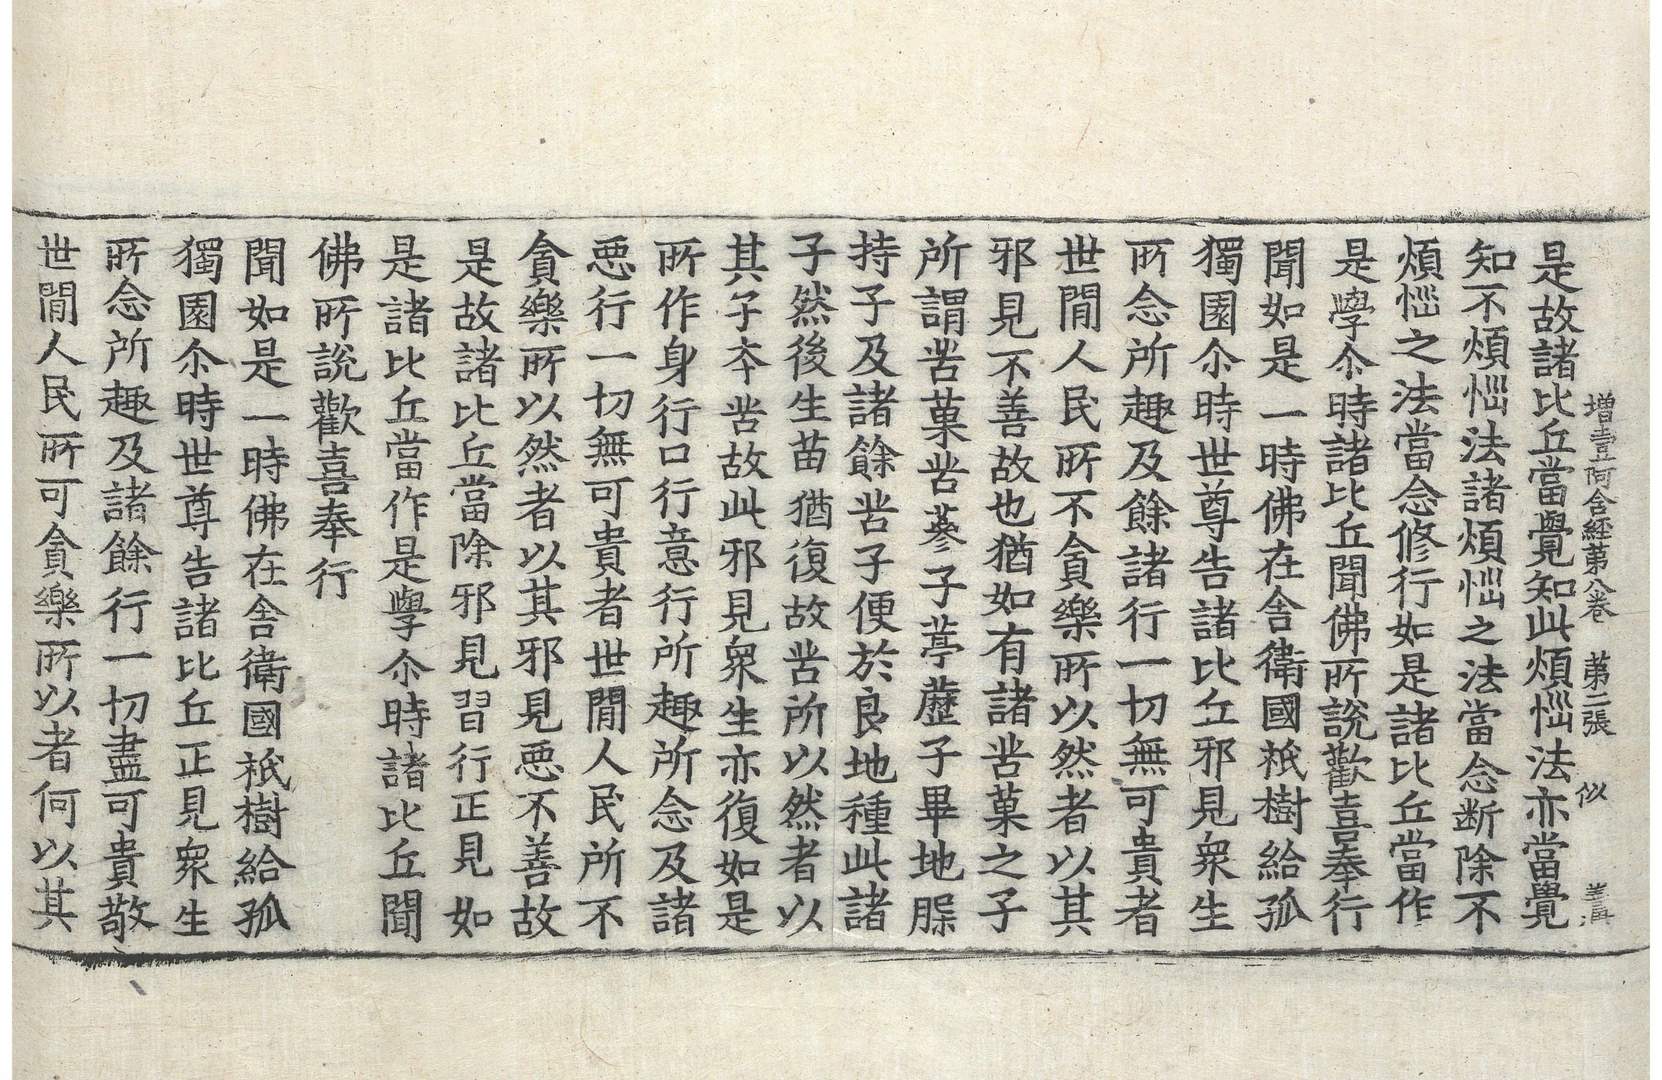 增壹阿含經第八卷 第二張 似
是故諸比丘當覺知此煩惱法亦當覺
知不煩惱法諸煩惱之法當念断除不
煩惱之法當念修行如是諸比丘當作
是學尒時諸比丘聞佛所說歡喜奉行
聞如是一時佛在舍衛國祇樹給孤
獨園尒時世尊告諸比丘邪見衆生
所念所趣及餘諸行一切無可貴者
世間人民所不貪樂所以然者以其
邪見不善故也猶如有諸苦菓之子
所謂苦菓苦蔘子葶藶子畢地脲
持子及諸餘苦子便於良地種此諸
子然後生苗猶復故苦所以然者以
其子本苦故此邪見衆生亦復如是
所作身行口行意行所趣所念及諸
惡行一切無可貴者世間人民所不
貪樂所以然者以其邪見惡不善故
是故諸比丘當除邪見習行正見如
是諸比丘當作是學尒時諸比丘聞
佛所說歡喜奉行
聞如是一時佛在舍衛國祇樹給孤
獨園尒時世尊告諸比丘正見衆生
所念所趣及諸餘行一切盡可貴敬
世間人民所可貪樂所以者何以其